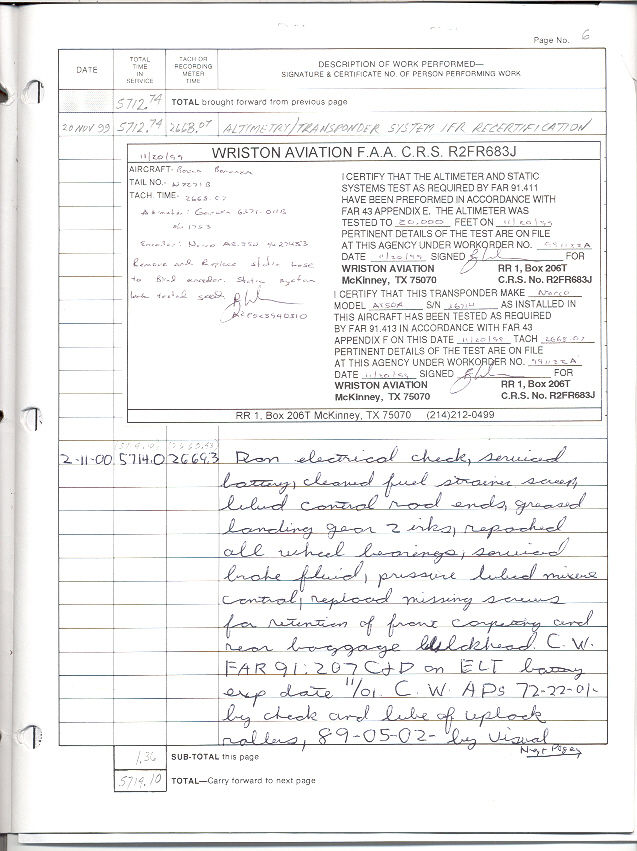 Page No. 6
DATE
TOTAL TIME IN SERVICE
TACH OR RECORDING METER TIME
DESCRIPTION OF WORK PERFORMED—
SIGNATURE & CERTIFICATE NO. OF PERSON PERFORMING WORK
5712.74 TOTAL brought forward from previous page
20 NOV 99 5712.74 2668.07 ALTIMETRY/TRANSPONDER SYSTEM IFR RECERTIFICATION
11/20/99 WRISTON AVIATION F.A.A. C.R.S. R2FR683J
AIRCRAFT-
TAIL NO.-
TACH. TIME- 2668.07
Remove and Replace static hose
to Blind encoder. Static system
leak tested
I CERTIFY THAT THE ALTIMETER AND STATIC
SYSTEMS TEST AS REQUIRED BY FAR 91.411
HAVE BEEN PREFORMED IN ACCORDANCE WITH
FAR 43 APPENDIX E. THE ALTIMETER WAS
TESTED TO 20,000 FEET ON 11/20/99
PERTINENT DETAILS OF THE TEST ARE ON FILE
AT THIS AGENCY UNDER WORKORDER NO. 991122A
DATE 11/20/99 SIGNED FOR
WRISTON AVIATION RR 1, Box 206T
McKinney, TX 75070 C.R.S. No. R2FR683J
I CERTIFY THAT THIS TRANSPONDER MAKE Narco
MODEL AT50A S/N AS INSTALLED IN
THIS AIRCRAFT HAS BEEN TESTED AS REQUIRED
BY FAR 91.413 IN ACCORDANCE WITH FAR 43
APPENDIX F ON THIS DATE 11/20/99 TACH 2668.07
PERTINENT DETAILS OF THE TEST ARE ON FILE
AT THIS AGENCY UNDER WORKORDER NO. 991122A
DATE 11/20/99 SIGNED FOR
WRISTON AVIATION RR 1, Box 206T
McKinney, TX 75070 C.R.S. No. R2FR683J
RR 1, Box 206T McKinney, TX 75070 (214)212-0499
2-11-00 5714.0 2669.3 Ran electrical check, serviced
battery, cleaned fuel strainer screen,
lubed control rod ends, greased
landing gear zirks, repacked
all wheel bearings, serviced
brake fluid, pressure lubed mixture
control, replaced missing screws
for retention of front carpeting and
rear baggage bulckhead. C.W.
FAR 91.207 C+D on ELT battery
exp date 11/01. C.W. ADs 72-22-01-
by check and lube of uplock
rollers, 89-05-02- by visual
Next Page
1.36 SUB-TOTAL this page
5714.10 TOTAL—Carry forward to next page